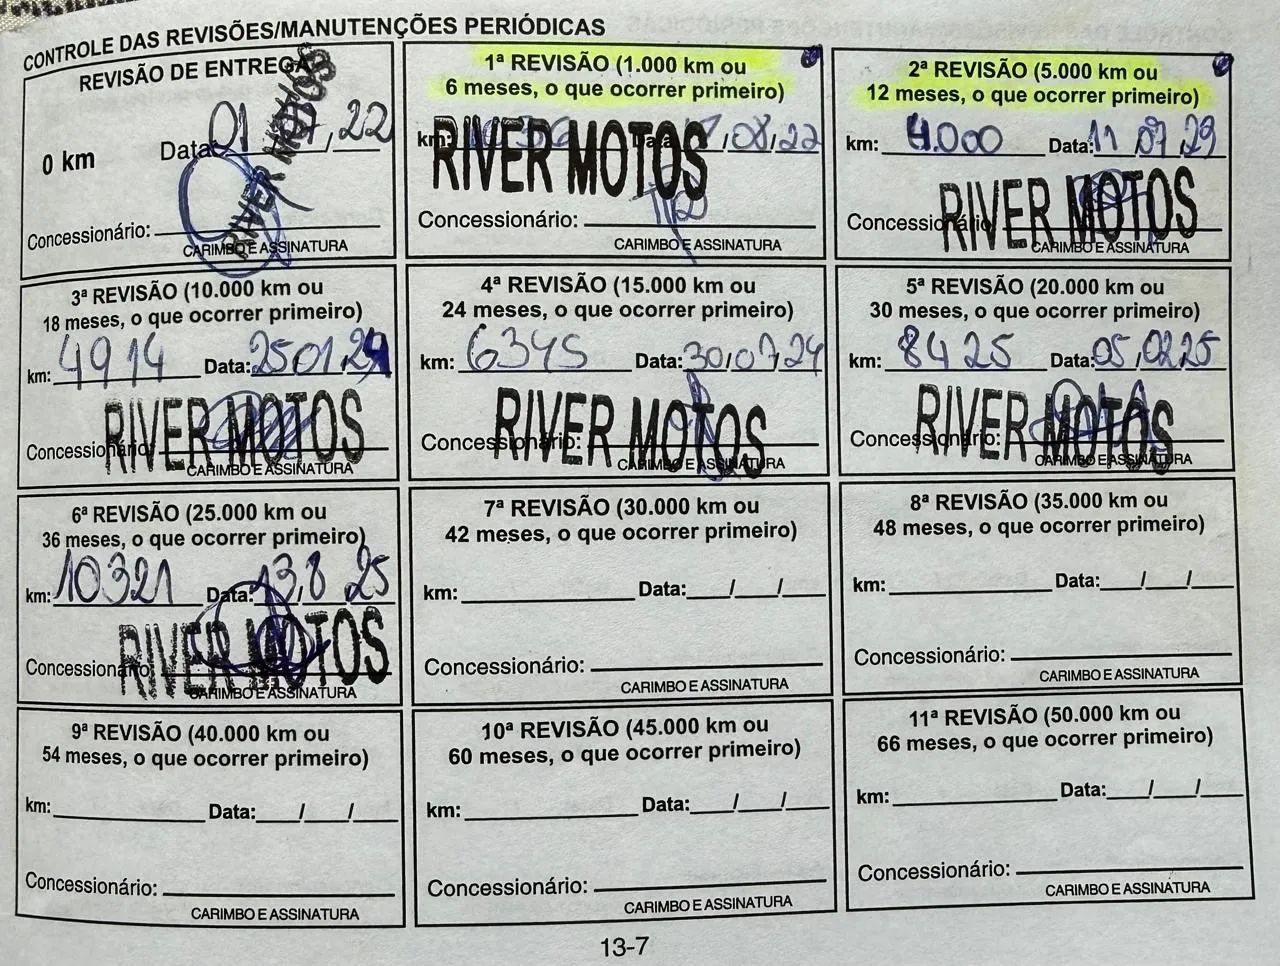 CONTROLE DAS REVISÕES/MANUTENÇÕES PERIÓDICAS
REVISÃO DE ENTREGA
0 km Data: 01 , 22
RIVER MOTOS
Concessionário:
CARIMBO E ASSINATURA
1ª REVISÃO (1.000 km ou
6 meses, o que ocorrer primeiro)
km: Data: ,08,22
RIVER MOTOS
Concessionário:
CARIMBO E ASSINATURA
2ª REVISÃO (5.000 km ou
12 meses, o que ocorrer primeiro)
km: 4.000 Data: 11 07 23
RIVER MOTOS
Concessionário:
CARIMBO E ASSINATURA
3ª REVISÃO (10.000 km ou
18 meses, o que ocorrer primeiro)
km: 4914 Data: 25,01,24
RIVER MOTOS
Concessionário:
CARIMBO E ASSINATURA
4ª REVISÃO (15.000 km ou
24 meses, o que ocorrer primeiro)
km: 6345 Data: 30,07,24
RIVER MOTOS
Concessionário:
CARIMBO E ASSINATURA
5ª REVISÃO (20.000 km ou
30 meses, o que ocorrer primeiro)
km: 8425 Data: 05,02,25
RIVER MOTOS
Concessionário:
CARIMBO E ASSINATURA
6ª REVISÃO (25.000 km ou
36 meses, o que ocorrer primeiro)
km: 10321 Data: 13,8 25
RIVER MOTOS
Concessionário:
CARIMBO E ASSINATURA
7ª REVISÃO (30.000 km ou
42 meses, o que ocorrer primeiro)
km: Data: / /
Concessionário:
CARIMBO E ASSINATURA
8ª REVISÃO (35.000 km ou
48 meses, o que ocorrer primeiro)
km: Data: / /
Concessionário:
CARIMBO E ASSINATURA
9ª REVISÃO (40.000 km ou
54 meses, o que ocorrer primeiro)
km: Data: / /
Concessionário:
CARIMBO E ASSINATURA
10ª REVISÃO (45.000 km ou
60 meses, o que ocorrer primeiro)
km: Data: / /
Concessionário:
CARIMBO E ASSINATURA
11ª REVISÃO (50.000 km ou
66 meses, o que ocorrer primeiro)
km: Data: / /
Concessionário:
CARIMBO E ASSINATURA
13-7